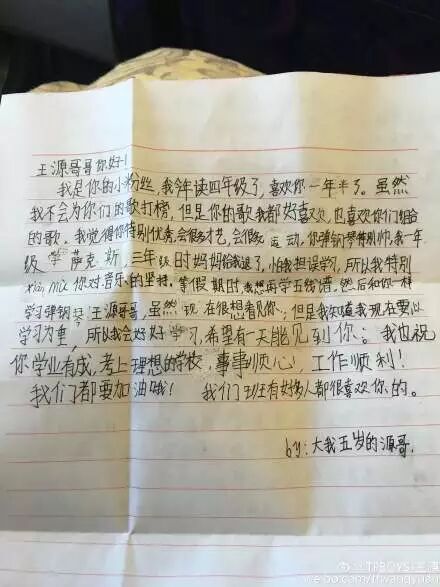 王源哥哥你好！
我是你的小粉丝，我今年读四年级了，喜欢你一年半了。虽然
我不会为你们的歌打榜，但是你的歌我都好喜欢，也喜欢你们组合
的歌。我觉得你特别优秀，会很多才艺，会很多运动，你弹钢琴特别帅，我一年
级学萨克斯，三年级时妈妈给我退了，怕我担误学习，所以我特别
xiàn mù 你对音乐的坚持。等假期时我想再学五线谱，然后和你一样
学习弹钢琴。王源哥哥，虽然现在很想看见你，但是我知道我现在要以
学习为重，所以我会好好学习，希望有一天能见到你。我也祝
你学业有成，考上理想的学校，事事顺心，工作顺利！
我们都要加油哦！ 我们班有好多人都很喜欢你的。
by：大我五岁的源哥.
@TFBOYS-王源
weibo.com/tfwangyuan